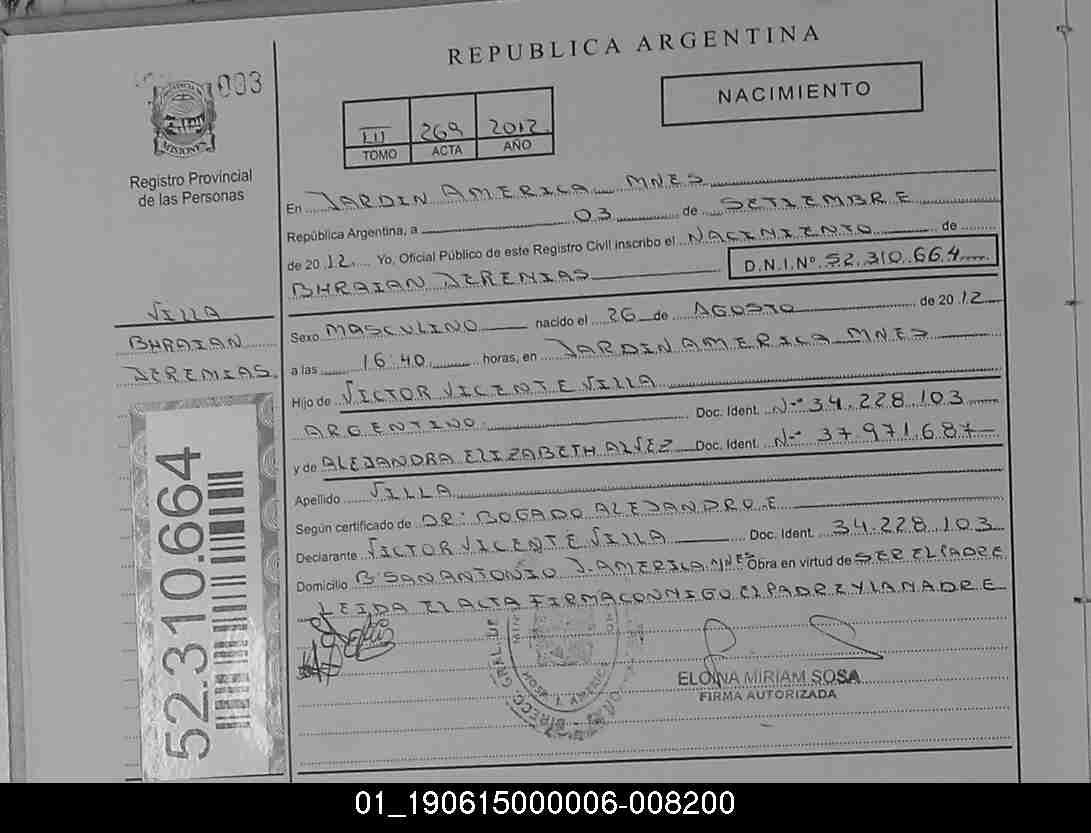 REPUBLICA ARGENTINA
003
NACIMIENTO
III 269 2012
TOMO ACTA AÑO
MISIONES
Registro Provincial
de las Personas
En JARDIN AMERICA MNES
República Argentina, a 03 de SETIEMBRE
de 2012 Yo, Oficial Público de este Registro Civil inscribo el NACIMIENTO de
BHRAIAN JEREMIAS D.N.I.Nº 52.310.664
VILLA
BHRAIAN
JEREMIAS
Sexo MASCULINO nacido el 26 de AGOSTO de 2012
a las 16:40 horas, en JARDIN AMERICA MNES
Hijo de VICTOR VICENTE VILLA
ARGENTINO Doc. Ident. Nº 34.228.103
y de ALEJANDRA ELIZABETH ALVEZ Doc. Ident. Nº 37.971.687
Apellido VILLA
Según certificado de DR: BOGADO ALEJANDRO.E
Declarante VICTOR VICENTE VILLA Doc. Ident. 34.228.103
Domicilio Bº SAN ANTONIO J. AMERICA.MNES Obra en virtud de SER EL PADRE
LEIDA EL ACTA FIRMA CONMIGO EL PADRE Y LA MADRE
52.310.664
DIRECC. GRAL. DE
ELOINA MIRIAM SOSA
FIRMA AUTORIZADA
01_190615000006-008200